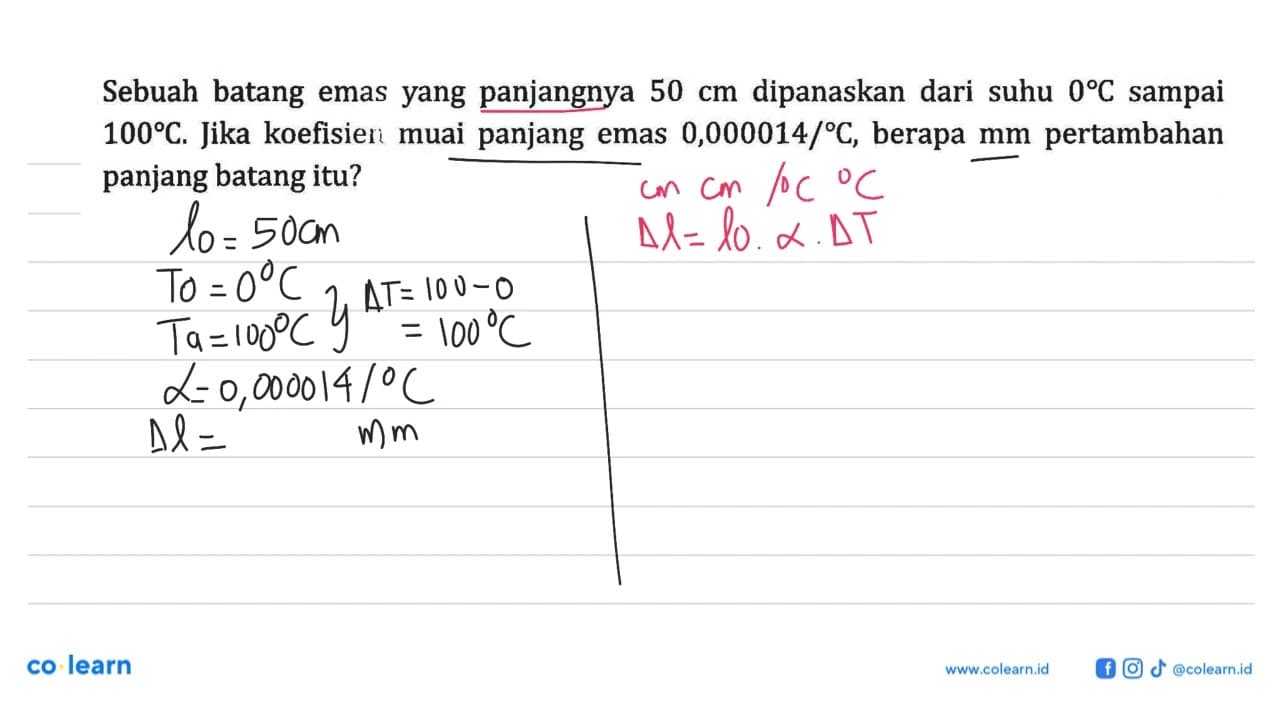 Sebuah batang emas yang panjangnya 50 cm dipanaskan dari suhu 0°C sampai
100°C. Jika koefisien muai panjang emas 0,000014/°C, berapa mm pertambahan
panjang batang itu?
cm cm /°C °C
Δl = l0 . α . ΔT
l0 = 50cm
T0 = 0°C
Ta = 100°C
} ΔT = 100 - 0
= 100°C
α = 0,000014/°C
Δl = mm
co learn
www.colearn.id
@colearn.id